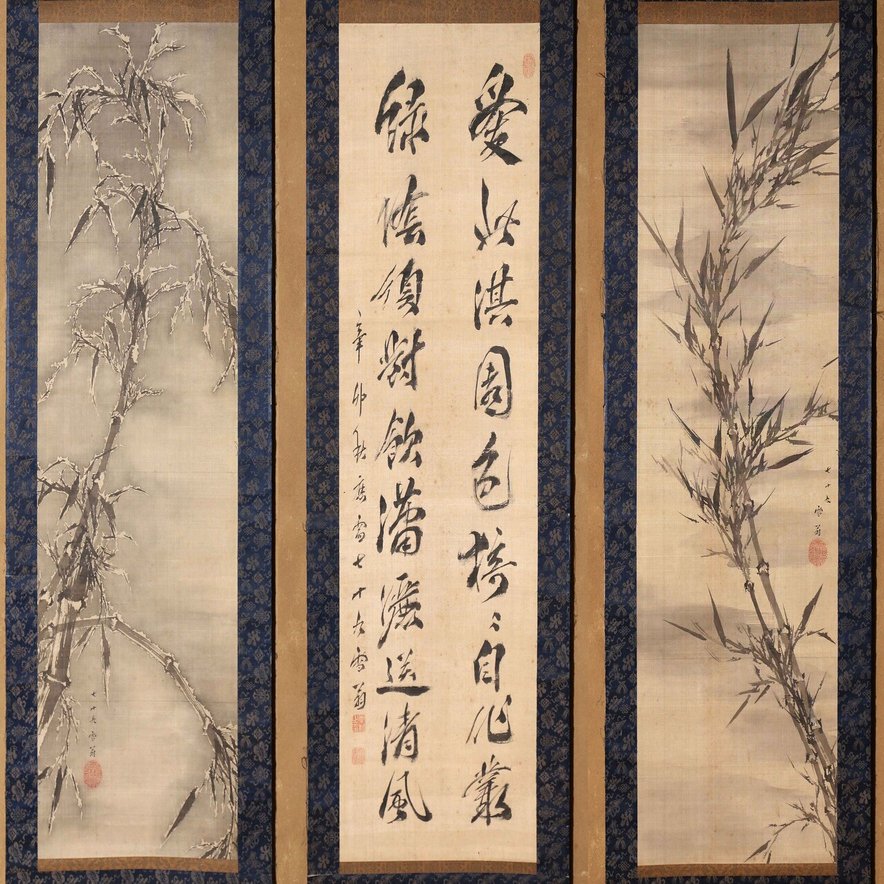 七十六雪翁
愛此淇園色猗〻自作叢
緑陰須對飲瀟灑送清風
辛卯秋應需七十六雪翁
七十六雪翁